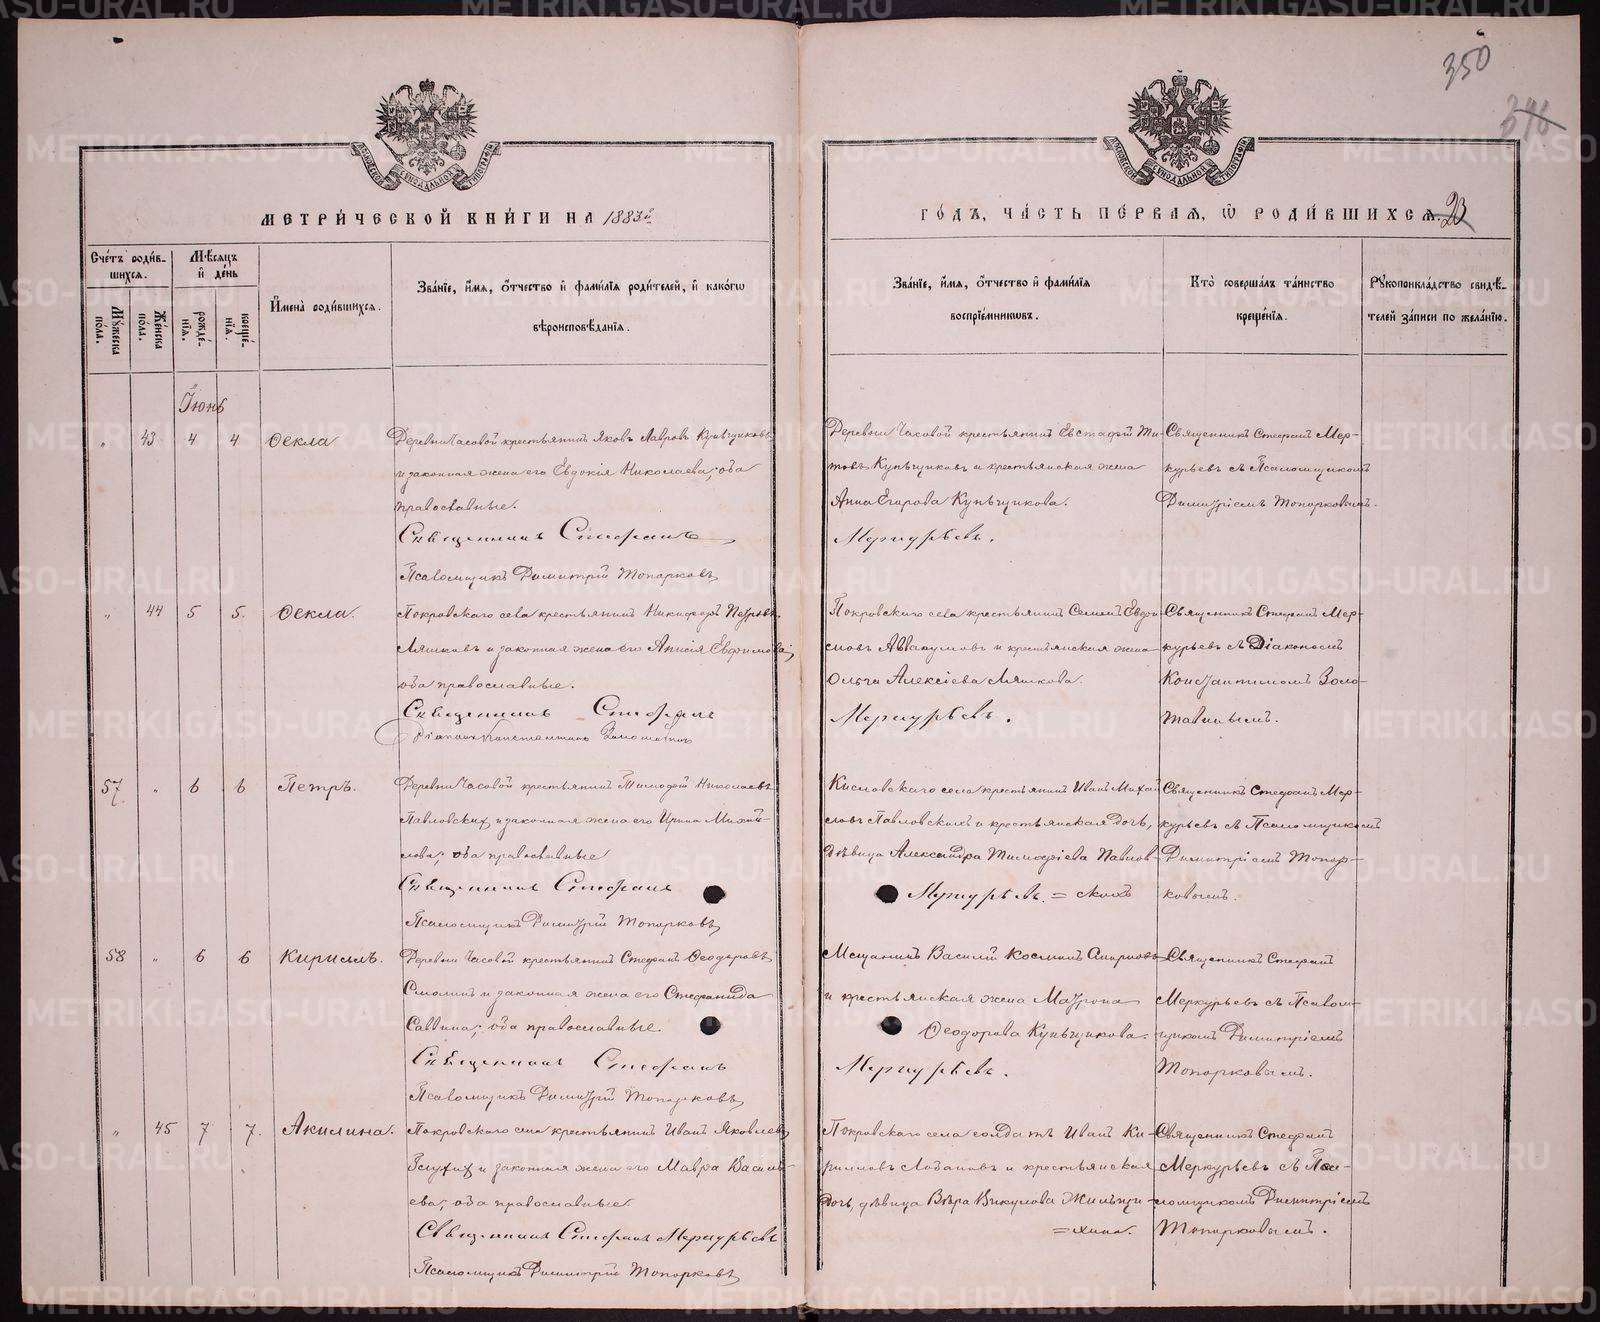 350
346
МЕТРИ́ЧЕСКОЙ КНИ́ГИ НА 1883й
ГО́ДЪ, ЧА́СТЬ ПЕ́РВАЯ, Ѡ РОДИ́ВШИХСЯ. 23
Сче́тъ роди́в-
шихся.
Мꙋжеска по́ла.
Же́нска по́ла.
Мѣ́сяцъ
и҆ де́нь
рожде́-
нїя.
креще́-
нїя.
И҆мена̀ роди́вшихся.
Зва́нїе, и҆́мя, ѻ҆́тчество и҆ фами́лїя роди́телей, и҆ како́гѡ
вѣроисповѣ́данїя.
Зва́нїе, и҆́мя, ѻ҆́тчество и҆ фами́лїя
воспрїе́мникѡвъ.
Кто̀ соверша́лъ та́инство
креще́нїя.
Рꙋкоприкла́дство свидѣ́-
телей за́писи по жела́нїю.
Іюнь
„ 43 4 4 Ѳекла
Деревни Часовой крестьянинъ Яковъ Лавровъ Купѣщиковъ
и законная жена его Евдокія Николаева; оба
православные.
Священникъ Стефанъ
Меркурьевъ.
Псаломщикъ Димитрій Топорковъ
Деревни Часовой крестьянинъ Евстафій Ти-
товъ Купѣщиковъ и крестьянская жена
Анна Егорова Купѣщикова.
Священникъ Стефанъ Мер-
курьевъ съ Псаломщикомъ
Димитріемъ Топорковымъ.
„ 44 5 5. Ѳекла.
Покровскаго села крестьянинъ Никифоръ Петровъ
Ляшковъ и законная жена его Анисія Евфимова;
оба православные.
Священникъ Стефанъ
Меркурьевъ.
Діаконъ Константинъ Золотавинъ
Покровскаго села крестьянинъ Семенъ Евфи-
мовъ Аввакумовъ и крестьянская жена
Ольга Алексіева Ляшкова.
Священникъ Стефанъ Мер-
курьевъ съ Діакономъ
Константиномъ Золо-
тавинымъ.
57. „ 6 6 Петръ.
Деревни Часовой крестьянинъ Тимофей Николаевъ
Павловскихъ и законная жена его Ирина Михай-
лова; оба православные
Священникъ Стефанъ
Меркурьевъ.
Псаломщикъ Димитрій Топорковъ
Кисловскаго села крестьянинъ Иванъ Михай
ловъ Павловскихъ и крестьянская дочь,
дѣвица Александра Тимофіева Павлов-
= скихъ
Священникъ Стефанъ Мер-
курьевъ съ Псаломщикомъ
Димитріемъ Топор-
ковымъ.
58 „ 6 6 Кириллъ.
Деревни Часовой крестьянинъ Стефанъ Ѳеодоровъ
Смолинъ и законная жена его Стефанида
Саввина; оба православные.
Священникъ Стефанъ
Меркурьевъ.
Псаломщикъ Димитрій Топорковъ
Мещанинъ Василій Косминъ Смирновъ
и крестьянская жена Матрона
Ѳеодорова Купѣщикова.
Священникъ Стефанъ
Меркурьевъ съ Псалом-
щикомъ Димитріемъ
Топорковымъ.
„ 45 7 7. Акилина.
Покровскаго села крестьянинъ Иванъ Яковлевъ
Глухихъ и законная жена его Мавра Василь-
ева; оба православные.
Священникъ Стефанъ Меркурьевъ
Псаломщикъ Димитрій Топорковъ
Покровскаго села солдатъ Иванъ Ки-
рилловъ Лобановъ и крестьянская
дочь, дѣвица Вѣра Викулова
=хина.
Священникъ Стефанъ
Меркурьевъ съ Пса-
ломщикомъ Димитріемъ
Топорковымъ.